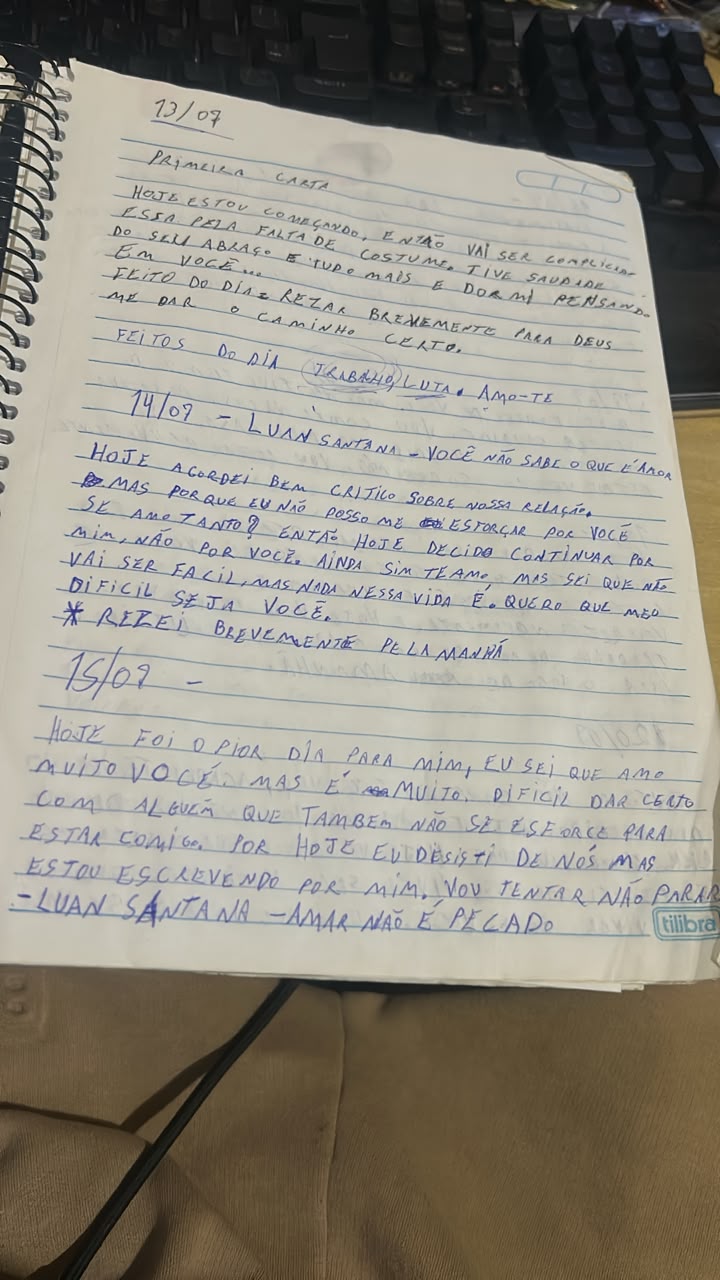 13/07
PRIMEIRA CARTA
HOJE ESTOU COMEÇANDO, ENTÃO VAI SER COMPLICADO
ESSA PELA FALTA DE COSTUME. TIVE SAUDADE
DO SEU ABRAÇO E TUDO MAIS E DORMI PENSANDO
EM VOCÊ...
FEITO DO DIA: REZAR BREVEMENTE PARA DEUS
ME DAR O CAMINHO CERTO.
FEITOS DO DIA TRABALHO, LUTA. AMO-TE
14/07 - LUAN SANTANA - VOCÊ NÃO SABE O QUE É AMOR
HOJE ACORDEI BEM CRITICO SOBRE NOSSA RELAÇÃO.
MAS PORQUE EU NÃO POSSO ME ESFORÇAR POR VOCÊ
SE AMO TANTO? ENTÃO HOJE DECIDO CONTINUAR POR
MIM, NÃO POR VOCÊ. AINDA SIM TE AMO, MAS SEI QUE NÃO
VAI SER FACIL, MAS NADA NESSA VIDA É. QUERO QUE MEU
DIFICIL SEJA VOCÊ.
* REZEI BREVEMENTE PELA MANHÃ
15/07 -
HOJE FOI O PIOR DIA PARA MIM, EU SEI QUE AMO
MUITO VOCÊ. MAS É MUITO DIFICIL DAR CERTO
COM ALGUÉM QUE TAMBEM NÃO SE ESFORCE PARA
ESTAR COMIGO. POR HOJE EU DESISTI DE NÓS MAS
ESTOU ESCREVENDO POR MIM. VOU TENTAR NÃO PARAR
- LUAN SANTANA - AMAR NÃO É PECADO
tilibra